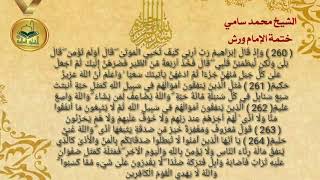 الشيخ محمد سامي
ختمة الإمام ورش
(260) وَإِذْ قَالَ إِبْرَاهِيمُ رَبِّ أَرِنِي كَيْفَ تُحْيِي الْمَوْتَىٰ قَالَ أَوَلَمْ تُؤْمِن قَالَ
بَلَىٰ وَلَٰكِن لِّيَطْمَئِنَّ قَلْبِي قَالَ فَخُذْ أَرْبَعَةً مِّنَ الطَّيْرِ فَصُرْهُنَّ إِلَيْكَ ثُمَّ اجْعَلْ
عَلَىٰ كُلِّ جَبَلٍ مِّنْهُنَّ جُزْءًا ثُمَّ ادْعُهُنَّ يَأْتِينَكَ سَعْيًا وَاعْلَمْ أَنَّ اللَّهَ عَزِيزٌ
حَكِيمٌ (261) مَّثَلُ الَّذِينَ يُنفِقُونَ أَمْوَالَهُمْ فِي سَبِيلِ اللَّهِ كَمَثَلِ حَبَّةٍ أَنبَتَتْ
سَبْعَ سَنَابِلَ فِي كُلِّ سُنبُلَةٍ مِّائَةُ حَبَّةٍ وَاللَّهُ يُضَاعِفُ لِمَن يَشَاءُ وَاللَّهُ وَاسِعٌ
عَلِيمٌ (262) الَّذِينَ يُنفِقُونَ أَمْوَالَهُمْ فِي سَبِيلِ اللَّهِ ثُمَّ لَا يُتْبِعُونَ مَا أَنفَقُوا
مَنًّا وَلَا أَذًى لَّهُمْ أَجْرُهُمْ عِندَ رَبِّهِمْ وَلَا خَوْفٌ عَلَيْهِمْ وَلَا هُمْ يَحْزَنُونَ
(263) قَوْلٌ مَّعْرُوفٌ وَمَغْفِرَةٌ خَيْرٌ مِّن صَدَقَةٍ يَتْبَعُهَا أَذًى وَاللَّهُ غَنِيٌّ
حَلِيمٌ (264) يَا أَيُّهَا الَّذِينَ آمَنُوا لَا تُبْطِلُوا صَدَقَاتِكُم بِالْمَنِّ وَالْأَذَىٰ كَالَّذِي
يُنفِقُ مَالَهُ رِئَاءَ النَّاسِ وَلَا يُؤْمِنُ بِاللَّهِ وَالْيَوْمِ الْآخِرِ فَمَثَلُهُ كَمَثَلِ صَفْوَانٍ
عَلَيْهِ تُرَابٌ فَأَصَابَهُ وَابِلٌ فَتَرَكَهُ صَلْدًا لَّا يَقْدِرُونَ عَلَىٰ شَيْءٍ مِّمَّا كَسَبُوا
وَاللَّهُ لَا يَهْدِي الْقَوْمَ الْكَافِرِينَ